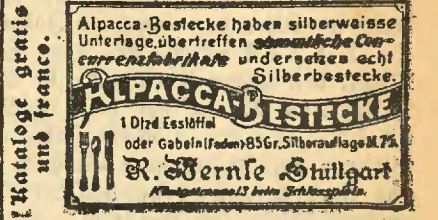 Kataloge gratis
und franco.
Alpacca-Bestecke haben silberweisse
Unterlage, übertreffen sämmtliche Con-
currenzfabrikate und ersetzen echt
Silberbestecke.
ALPACCA-BESTECKE
1 Dtzd Esslöffel
oder Gabeln (Faden) 85 Gr. Silberauflage M. 75.
R. Bernle Stuttgart
13 beim Schlossplatz.